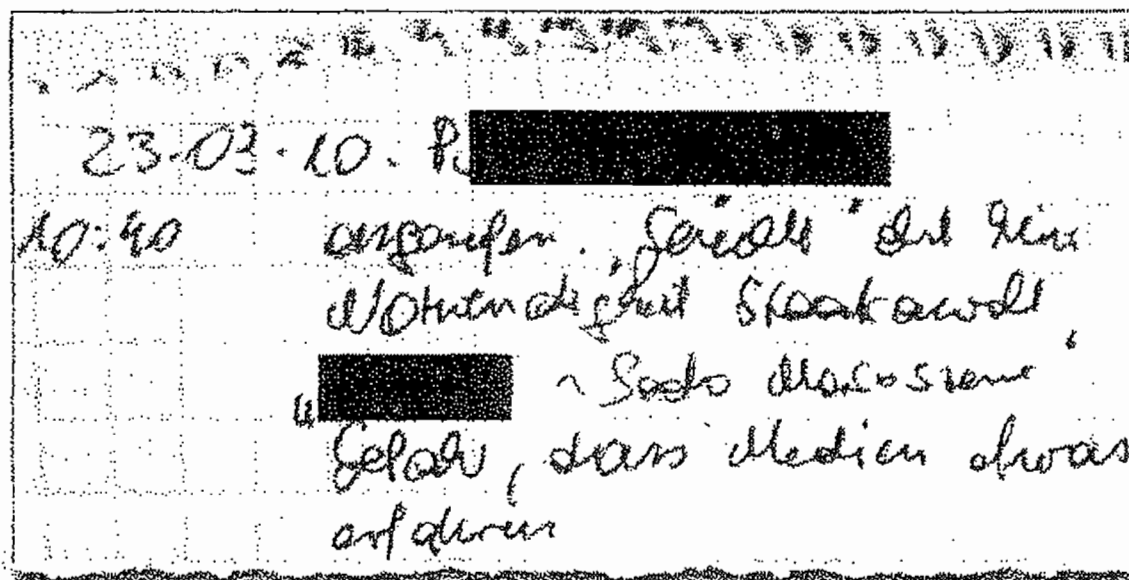 23.03.10. P.
10:40 angerufen. "Gericht" ist eine
Notwendigkeit Staatsanwalt
Sado Maso Szene"
Gefahr, dass Medien etwas
erfahren